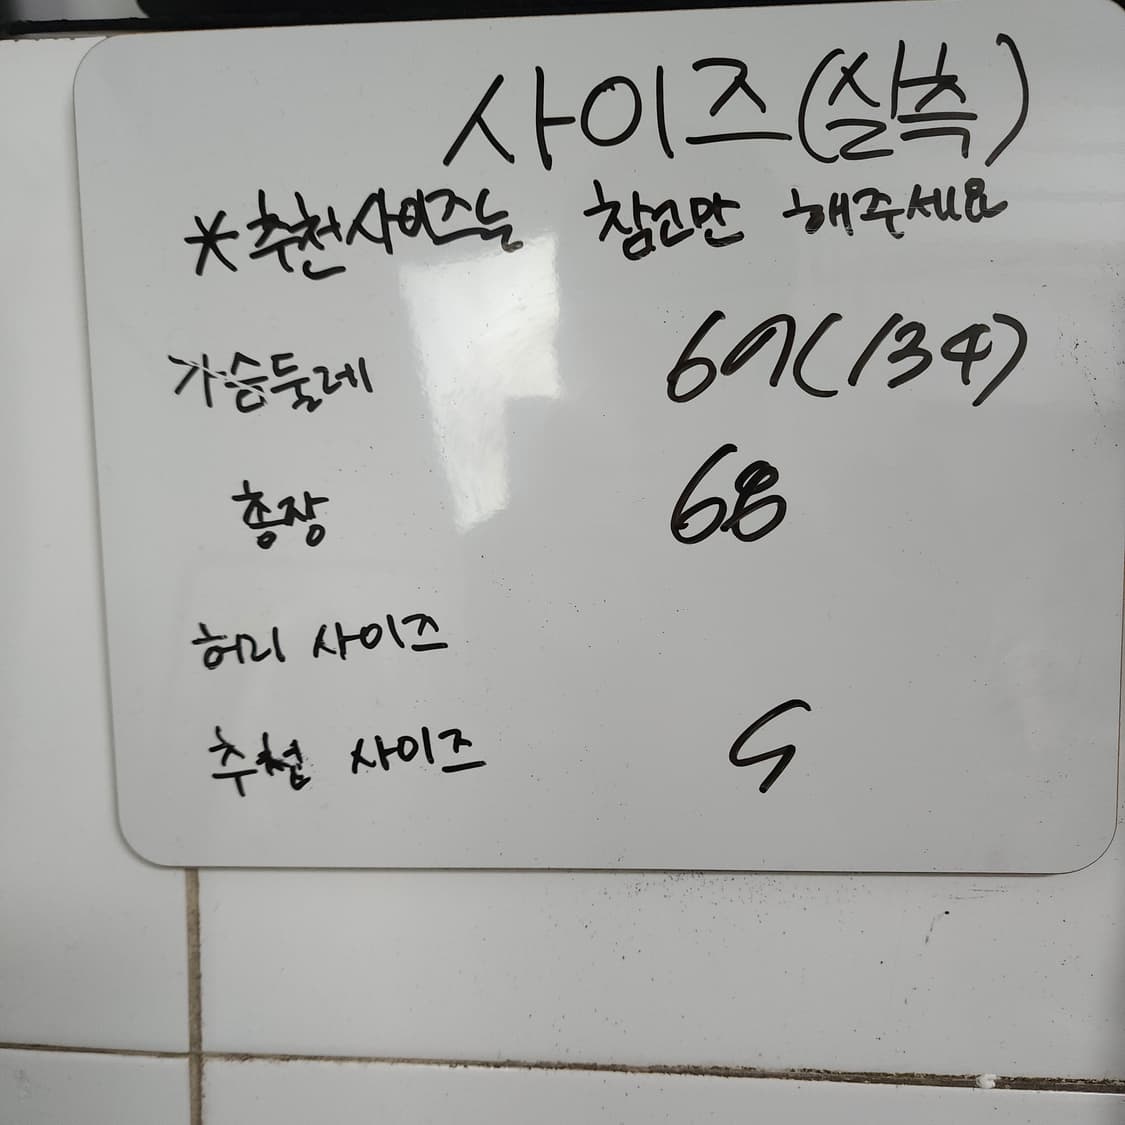 사이즈(실측)
*추천사이즈는 참고만 해주세요
가슴둘레 67(134)
총장 68
허리 사이즈
추천 사이즈 S